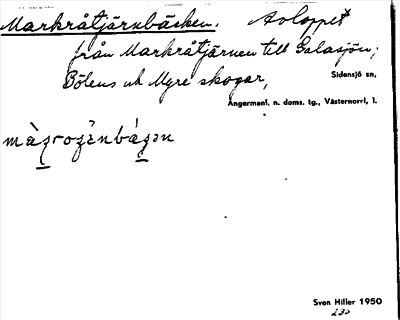 Markråtjärnbäcken. Avloppet
från Markråtjärnen till Galasjön;
Bölens och Myre skogar,
Sidensjö sn,
Ångermanl. n. doms. tg., Västernorrl. l.
Sven Hiller 1950